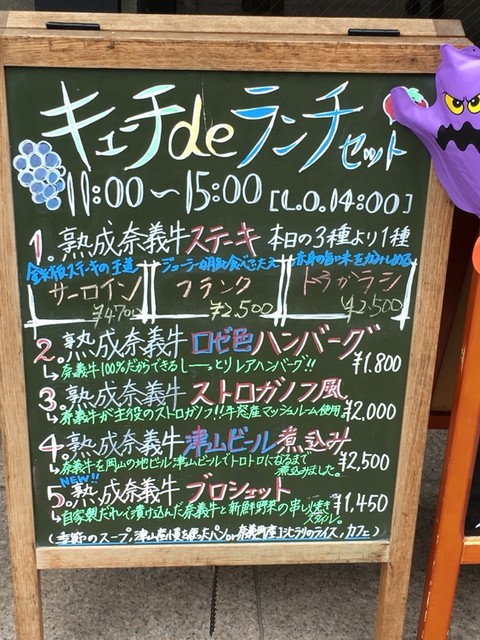 キューチdeランチセット
11:00〜15:00 [L.O.14:00]
1.熟成奈義牛ステーキ 本日の3種より1種
鉄板ステーキの王道 ジューシーな食べごたえ 赤身の旨味をかみしめる
サーロイン フランク トウガラシ
¥4,70 ¥2,500 ¥2,500
2.熟成奈義牛ロゼ色ハンバーグ
奈義牛100%だからできるしーーとりレアハンバーグ!! ¥1,800
3.熟成奈義牛ストロガノフ風
奈義牛が主役のストロガノフ!!千屋産マッシュルーム使用 ¥2,000
4.熟成奈義牛津山ビール煮込み
奈義牛を岡山の地ビール津山ビールでトロトロになるまで煮込みました。 ¥2,500
NEW!!
5.熟成奈義牛ブロシェット
自家製だれへ漬け込んだ奈義牛と新鮮野菜の串し焼きスタイル。 ¥1,450
(季節のスープ,津山産小麦を使ったパンor奈義町産コシヒカリのライス,カフェ)